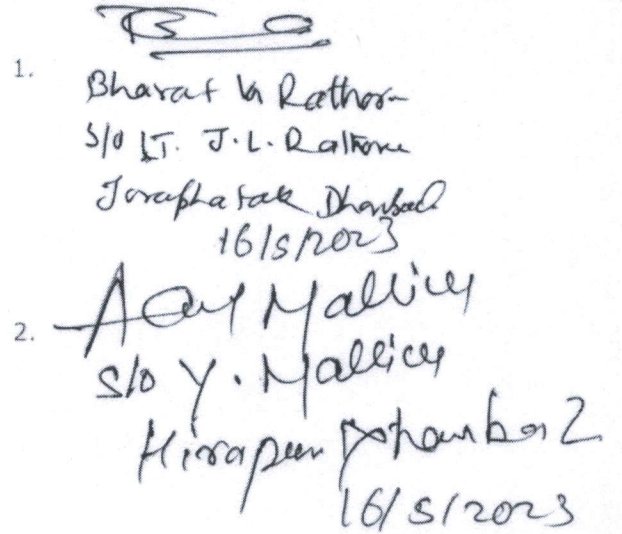 1.
Bharat Kr Rathore
S/O LT. J.L. Rathore
Joraphatak Dhanbad
16/5/2023
2. Mallick
S/o Y. Mallick
Hirapur Dhanbad
16/5/2023